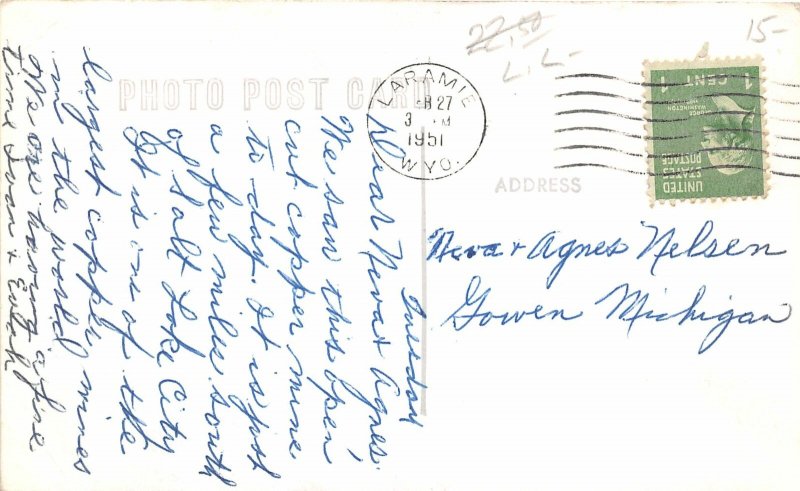 22.50
L.L-
15-
PHOTO POST CARD
LARAMIE
27
3 M
1951
WYO.
1 CENT 1
GEORGE
WASHINGTON
UNITED
STATES
POSTAGE
ADDRESS
Neva + Agnes Nelsen
Gowen Michigan
Tuesday
Dear Neva + Agnes:
We saw this open
cut copper mine
to-day. It is just
a few miles south
of Salt Lake City
It is on of the
largest copper mines
in the world
We are having a fine
time Ivan +